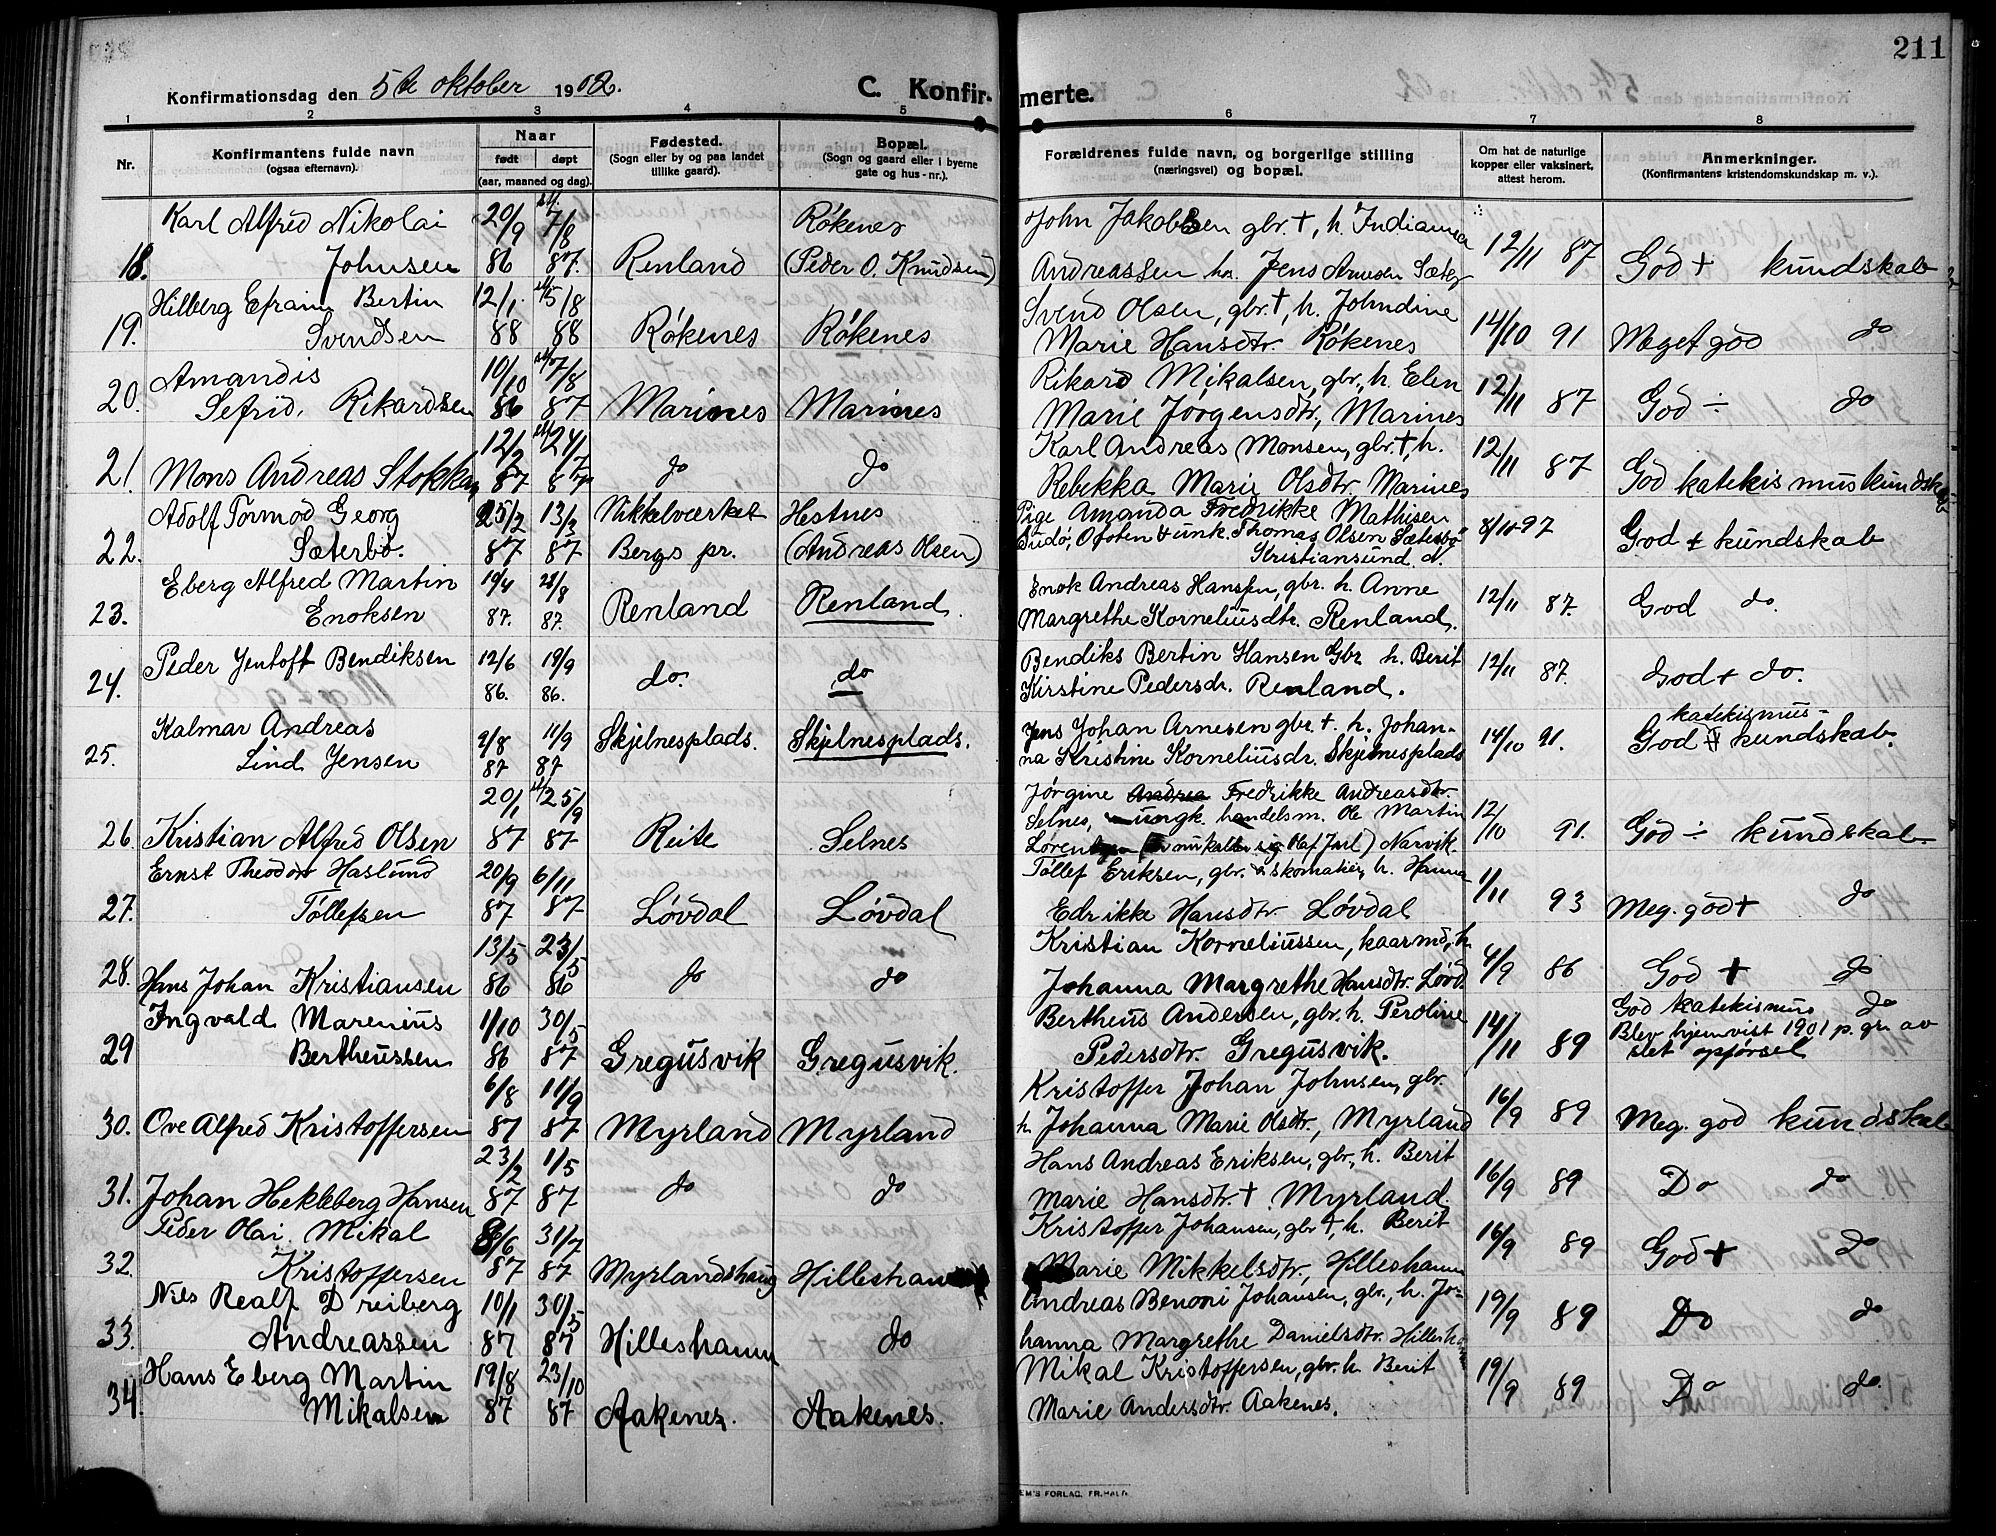 211
Konfirmationsdag den 5te oktober 1902.
C. Konfirmerte.
1 2 3 4 5 6 7 8
Nr.
Konfirmantens fulde navn
(ogsaa efternavn).
Naar
født døpt
(aar, maaned og dag).
Fødested.
(Sogn eller by og paa landet
tillike gaard).
Bopæl.
(Sogn og gaard eller i byerne
gate og hus-nr.).
Forældrenes fulde navn, og borgerlige stilling
(næringsvei) og bopæl.
Om hat de naturlige
kopper eller vaksinert,
attest herom.
Anmerkninger.
(Konfirmantens kristendomskundskap m. v.).
Karl Alfred Nikolai 20/9 7/8 Røkenes John Jakobsen gbr. +, h. Indianna
18. Johnsen 86 87. Renland (Peder O. Knudsen) Andreassen Jens Arnesen Sæter 12/11 87 God + kundskab
Hilberg Efraim Bertin 12/1. 5/8 Svend Olsen, gbr. +, h. Johndine
19. Svendsen 88 88 Røkenes Røkenes Marie Hansdtr. Røkenes 14/10 91 Meget god do
Amandis 10/10 7/8 Rikard Mikalsen, gbr., h. Elen
20. Sefrid, Rikardsen 86 87 Marines Marines Marie Jørgensdtr., Marines 12/11 87 God ÷ do
12/2 24/7 Karl Andreas Monsen, gbr. +, h.
21. Mons Andreas Stokka 87 87 do do Rebekka Marie Olsdtr. Marines 12/11 87 God katekismuskundskab
Adolf Tormod Georg 25/2 13/2 Nikkelværket Hestnes Pige Amanda Fredrikke Mathisen
22. Sæterbø. 87 87 Bergs pr. (Andreas Olsen) Ofoten & unk. Thomas Olsen Sæterbø 8/10 97 God + kundskab
Kristiansund. d.
Eberg Alfred Martin 19/4 21/8 Enok Andreas Hanssen, gbr. h. Anne
23. Enoksen 87. 87. Renland Renland. Margrethe Korneliusdtr. Renland. 12/11 87. God do.
Peder Jentoft Bendiksen 12/6 19/9 Bendiks Bertin Hansen Gbr. h. Berit
24. 86. 86. do. do Kirstine Pedersdr. Renland. 12/11 87. God + do.
Kalmar Andreas 2/8 11/9 Skjelnesplads. Skjelnesplads. Jens Johan Arnesen gbr. +. h. Johan- katekismus-
25. Lind Jensen 87 87 na Kristine Korneliusdr. Skjelnesplads 14/10 91. God + kundskab.
20/1 25/9 Jørgine Andrea Fredrikke Andreasdtr.
Selnes, ungk. handelsm. Ole Martin
26. Kristian Alfred Olsen 87 87. Reite Selnes omkalder sig Olaf Jarl) Narvik 12/10 91. God ÷ kundskab
Ernst Theodor Haslund 20/9 6/11 Tøllef Eriksen, gbr. & skomaker, h. Hanna
27. Tøllefsen 87 87 Løvdal Løvdal Edrikke Hansdtr. Løvdal 1/11 93 Meg. god + do
13/5 23/5 Kristian Korneliussen, kaarmd, h.
28. Hans Johan Kristiansen 86 86 do do Johanna Margrethe Hansdtr. Løvd. 4/9 86 God + do
Ingvald Marenius 1/10 30/5 Bertheus Andersen, gbr. h. Peroline God katekismus do
29 Bertheussen 86 87 Gregusvik Gregusvik. Pedersdtr. Gregusvik. 14/11 89 Blev hjemvist 1901 p. gr. av
slet opførsel
6/8 11/9 Kristoffer Johan Johnsen, gbr.
30. Ove Alfred Kristoffersen 87 87 Myrland Myrland h. Johanna Marie Olsdtr., Myrland 16/9 89 Meg. god kundskab
23/2 1/5 Hans Andreas Eriksen, gbr., h. Berit
31. Johan Hekleberg Hansen 87 87 do do Marie Hansdtr. + Myrland. 16/9 89 Do do
Peder Olai Mikal 8/6 31/7 Kristoffer Johansen, gbr. +, h. Berit
32. Kristoffersen 87 87 Myrlandshaug Hilleshamn Marie Mikkelsdtr., Hilleshamn 16/9 89 God + do
Nils Realf Dreiberg 10/1 30/3 Andreas Benoni Johansen, gbr., h. Jo-
33. Andreassen 87 87 Hilleshamn do hanna Margrethe Danielsdtr. Hilleshamn 19/9 89 Do do
Hans Eberg Martin 19/8 23/10 Mikal Kristoffersen, gbr. h. Berit
34. Mikalsen 87 87 Aakenes. Aakenes. Marie Andersdtr. Aakenes. 19/9 89 Do do.
EM'S FORLAG, FR.HALD.